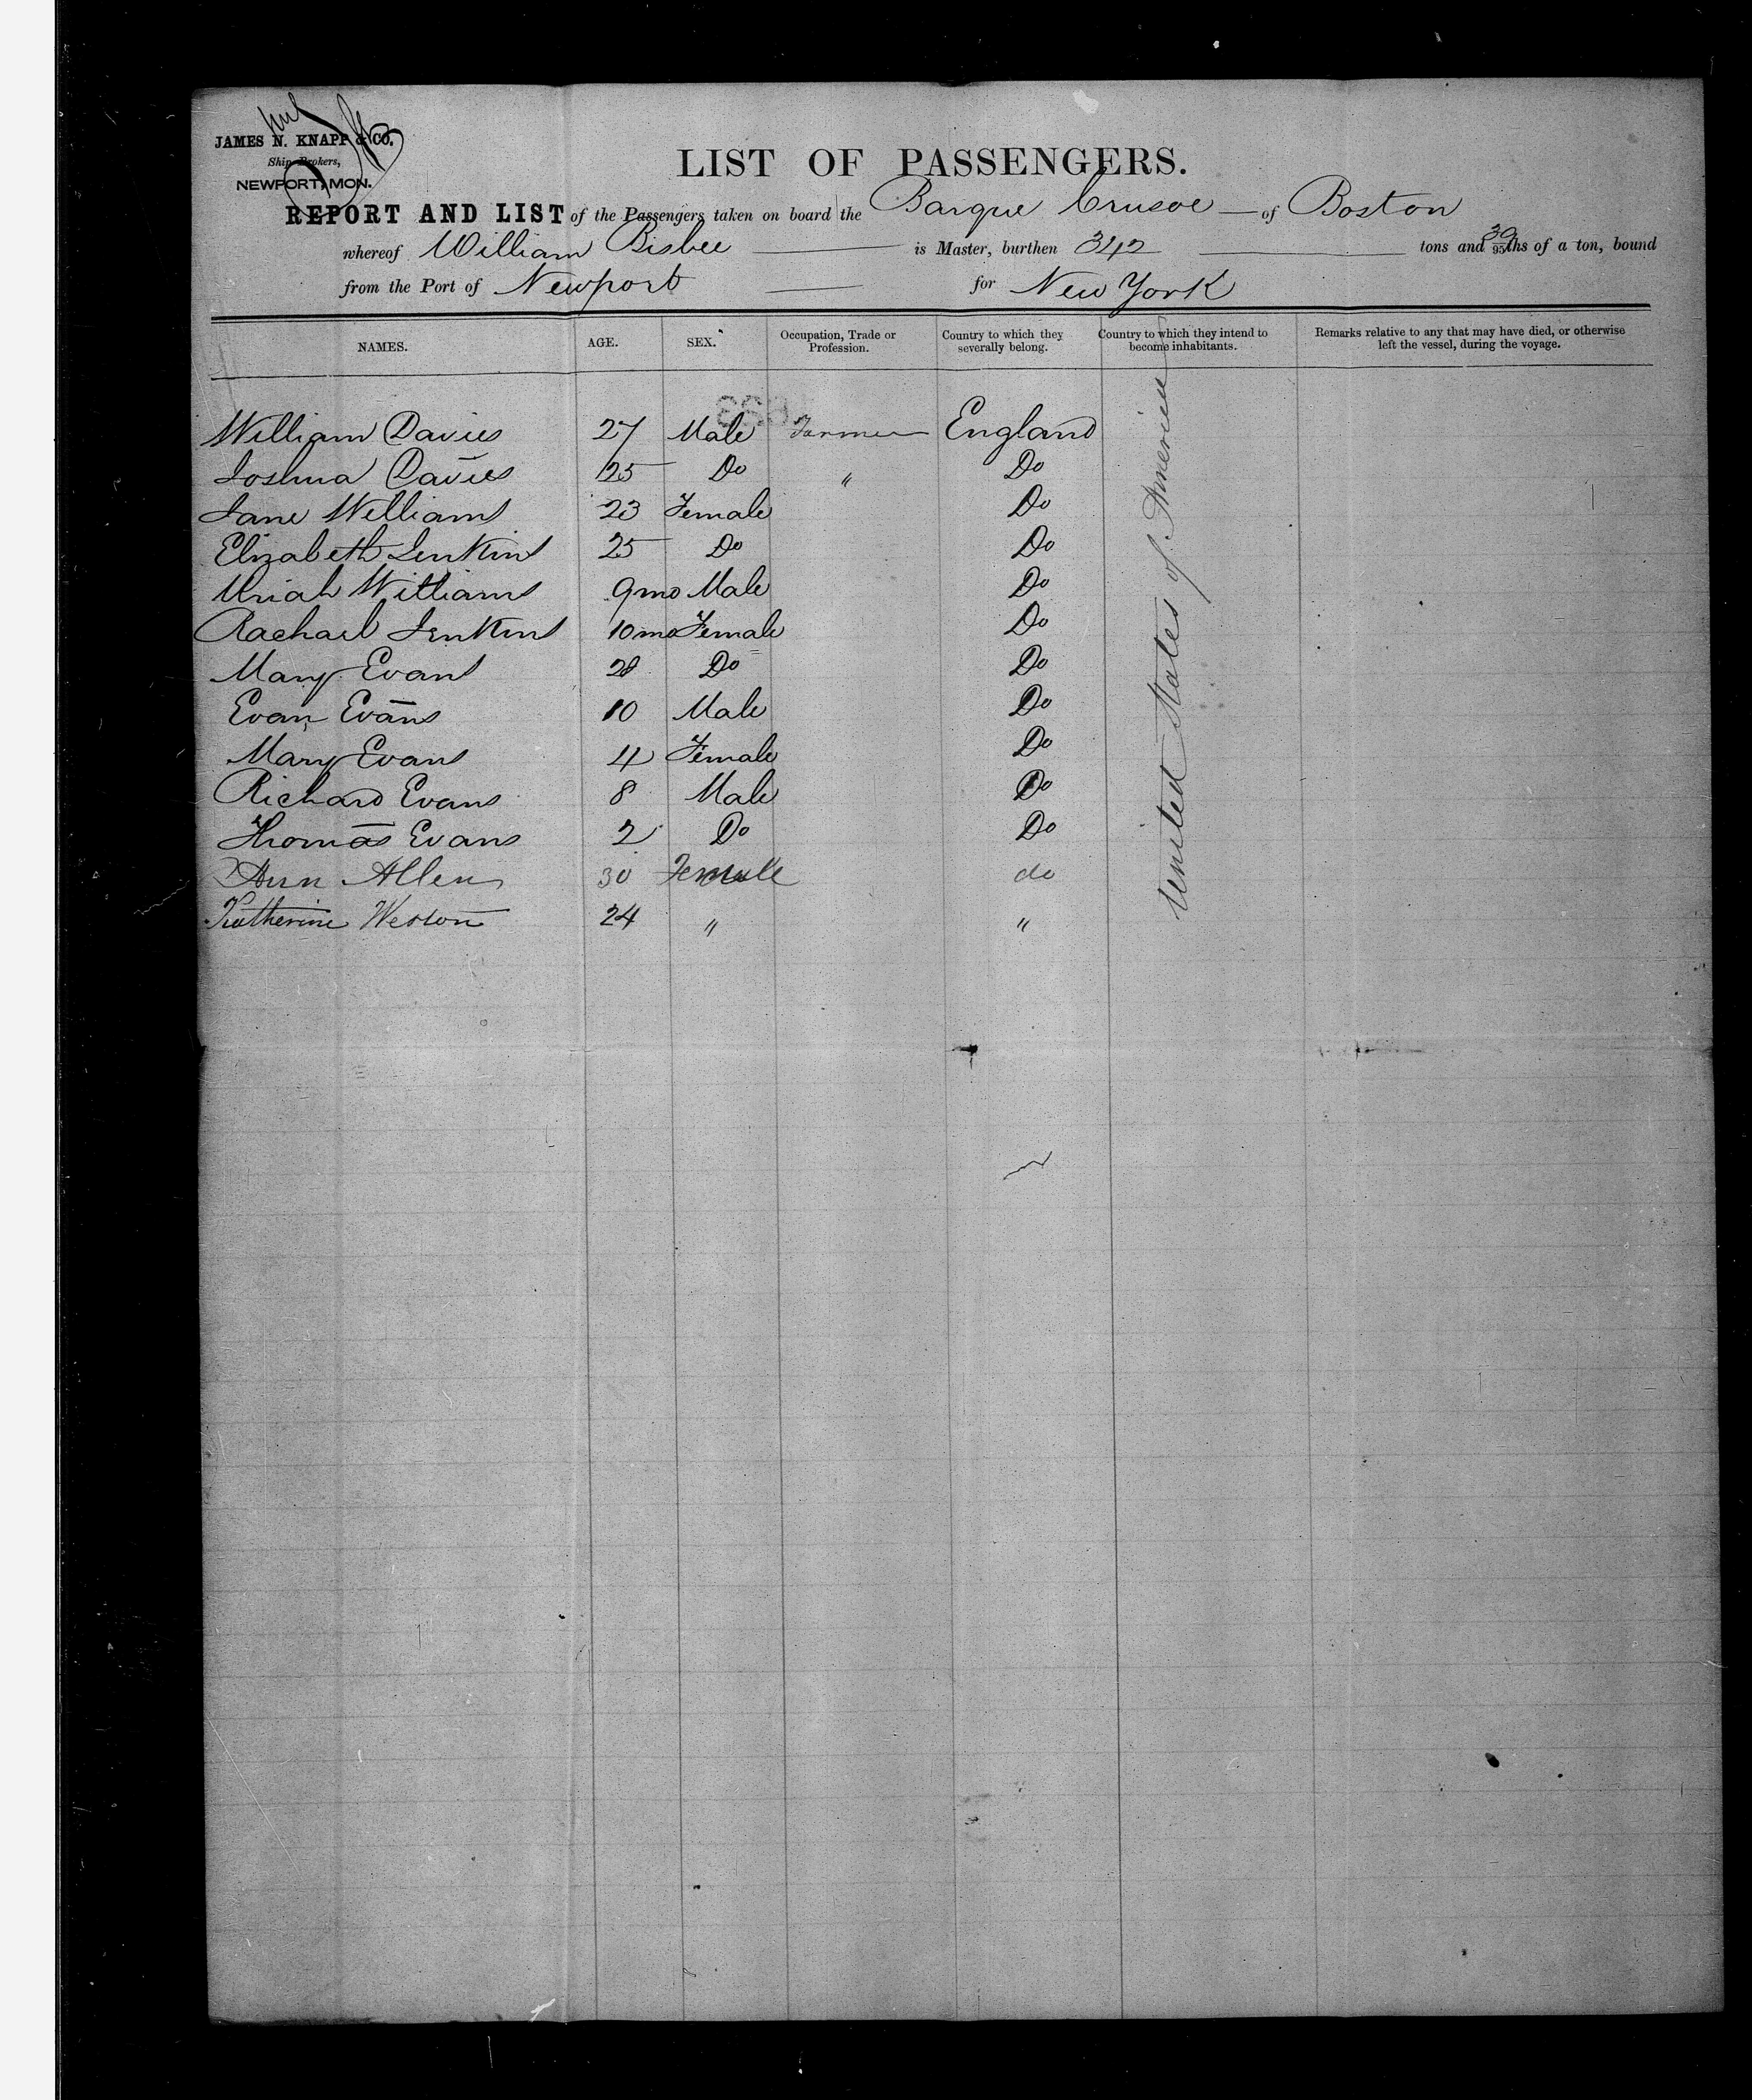 JAMES N. KNAPP & CO.
Ship Brokers,
NEWPORT, MON.
LIST OF PASSENGERS.
REPORT AND LIST of the Passengers taken on board the Barque Crusoe of Boston
whereof William Bisbee is Master, burthen 342 tons and 39/95ths of a ton, bound
from the Port of Newport for New York
NAMES. AGE. SEX. Occupation, Trade or Profession. Country to which they severally belong. Country to which they intend to become inhabitants. Remarks relative to any that may have died, or otherwise left the vessel, during the voyage.
William Davies 27 Male Farmer England
Joshua Davies 25 Do " Do
Jane Williams 23 Female Do
Elizabeth Jenkins 25 Do Do
Uriah Williams 9 mo Male Do
Rachael Jenkins 10 mo Female Do
Mary Evans 28 Do Do
Evan Evans 10 Male Do
Mary Evans 4 Female Do
Richard Evans 8 Male Do
Thomas Evans 2 Do Do
Ann Allen 30 Female do
Katherine Weston 24 " "
United States of America